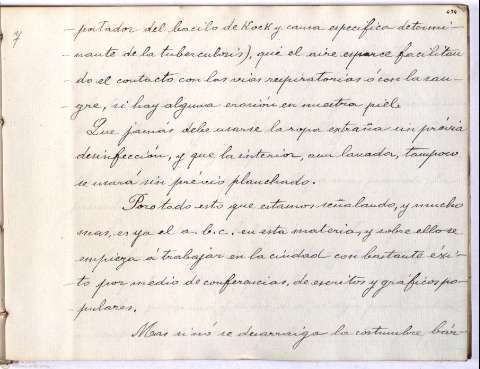 7
- portador del bacilo de Kock y causa específica determi-
- nante de la tuberculosis), qué el aire esparce facilitan-
- do el contacto con las vías respiratorias o con la san-
- gre, si hay alguna erosión en nuestra piel.
Que jamás debe usarse la ropa extraña sin prévia
desinfección, y que la interior, aun lavada, tampoco
se usará sin prévio planchado.
Pero todo esto que estamos señalando, y mucho
mas, es ya el a. b. c. en esta materia, y sobre ello se
empieza á trabajar en la ciudad con bastante éxi-
- to por medio de conferencias, de escritos y gráficos po-
- pulares.
Mas sinó se desarraiga la costumbre bár-